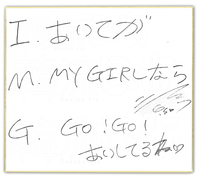 I. あいてが
M. MY GIRLなら
G. GO!GO!
あいしてるねん